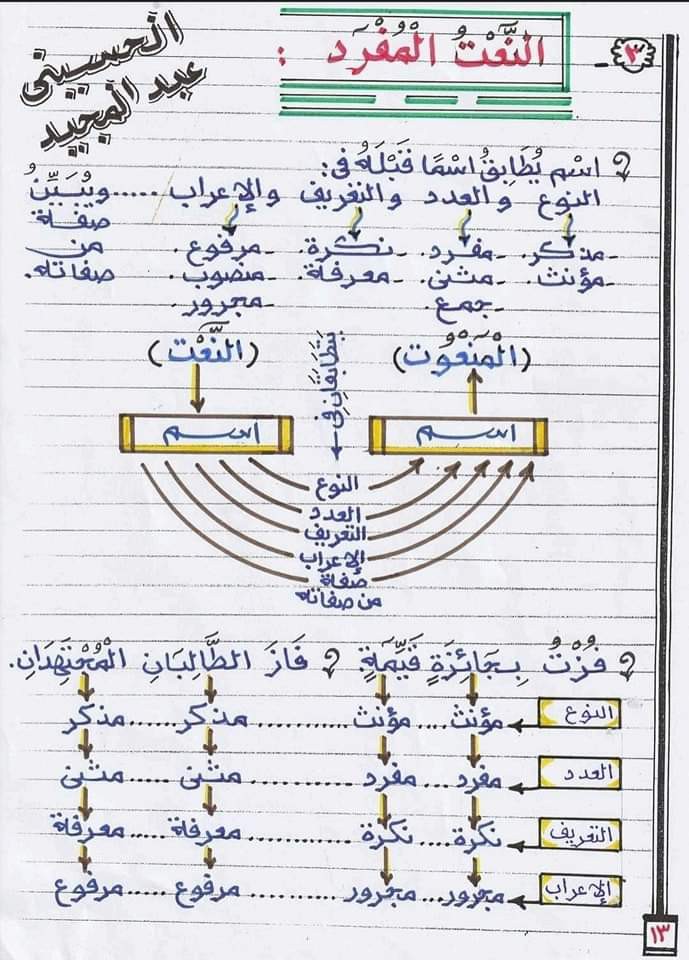 ٣
النَّعْتُ الْمُفْرَد :
الحسينى
عبد المجيد
اسْم يُطَابِقُ اسْمًا قَبْلَهُ فى:
النوع والعدد والتعريف والإعراب ...... ويُبَيِّنُ
صفة
من
صفاته.
- مذكر. - مفرد - نكرة. - مرفوع.
- مؤنث. - مثنى - معرفة. - منصوب
- جمع - مجرور
(الْمَنْعُوْت) يتطَابَقَانِ فِى (النَّعْت)
اسم اسم
النوع
العدد
التعريف
الإعراب
صفة
من صفاته
فُزْتُ بِجَائِزَةٍ قَيِّمَةٍ فَازَ الطَّالِبَانِ الْمُجْتَهِدَانِ.
النوع مؤنث .... مؤنث ........... مذكر ...... مذكر
العدد مفرد ... مفرد ........... مثنى ...... مثنى
التعريف نكرة ... نكرة ........... معرفة ...... معرفة
الإعراب مجرور ... مجرور .......... مرفوع ..... مرفوع
١٣